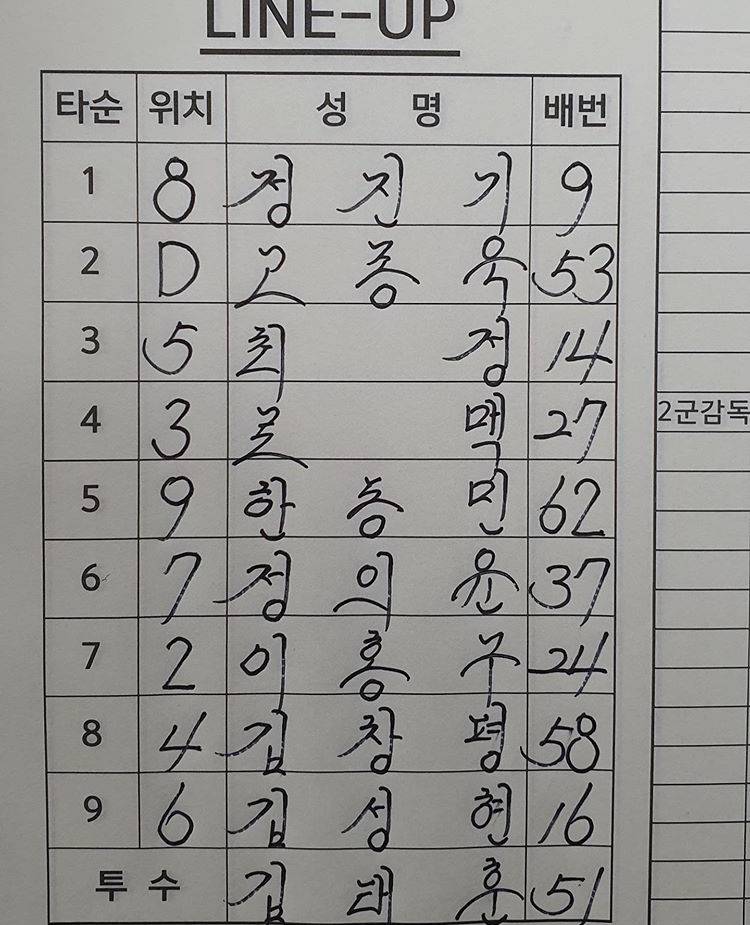 LINE-UP
타순 위치 성 명 배번
1 8 정 진 기 9
2 D 고 종 욱 53
3 5 최 정 14
4 3 로 맥 27
5 9 한 동 민 62
6 7 정 의 윤 37
7 2 이 홍 구 24
8 4 김 창 평 58
9 6 김 성 현 16
투 수 김 태 훈 51
2군감독